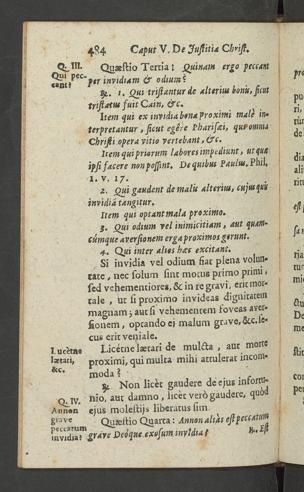 484 Caput V. De Justitia Christ.
Q. III.
Qui pec-
cant?
Quæstio Tertia: Quinam ergo peccant
per invidiam & odium?
℞. 1. Qui tristantur de alterius bonis, sicut
tristatus fuit Cain, &c.
Item qui ex invidia bona proximi malè in-
terpretantur, sicut egêre Pharisæi, qui omnia
Christi opera vitio vertebant, &c.
Item qui priorum labores impediunt, ut quæ
ipsi facere non possint. De quibus Paulus, Phil.
1. v. 17.
2. Qui gaudent de malis alterius, cujus quis
invidiâ tangitur.
Item qui optant mala proximo.
3. Qui odium vel inimicitiam, aut quam-
cúmque aversionem erga proximos gerunt.
4. Qui inter alios hæc excitant.
Si invidia vel odium fiat plena volun-
tate, nec solum sint motus primo primi,
sed vehementiores, & in re gravi, erit mor-
tale, ut si proximo invideas dignitatem
magnam; aut si vehementem foveas aver-
sionem, optando ei malum grave, &c. se-
cus erit veniale.
Lucétne
lætari,
&c.
Licétne lætari de mulcta, aut morte
proximi, qui multa mihi attulerat incom-
moda?
℞. Non licèt gaudere de ejus infortu-
nio, aut damno, licèt verò gaudere, quòd
ejus molestijs liberatus sim.
Q. IV.
Annon
grave
peccatum
invidia?
Quæstio Quarta: Annon aliàs est peccatum
grave Deóque exosum invidia?
℞. Est